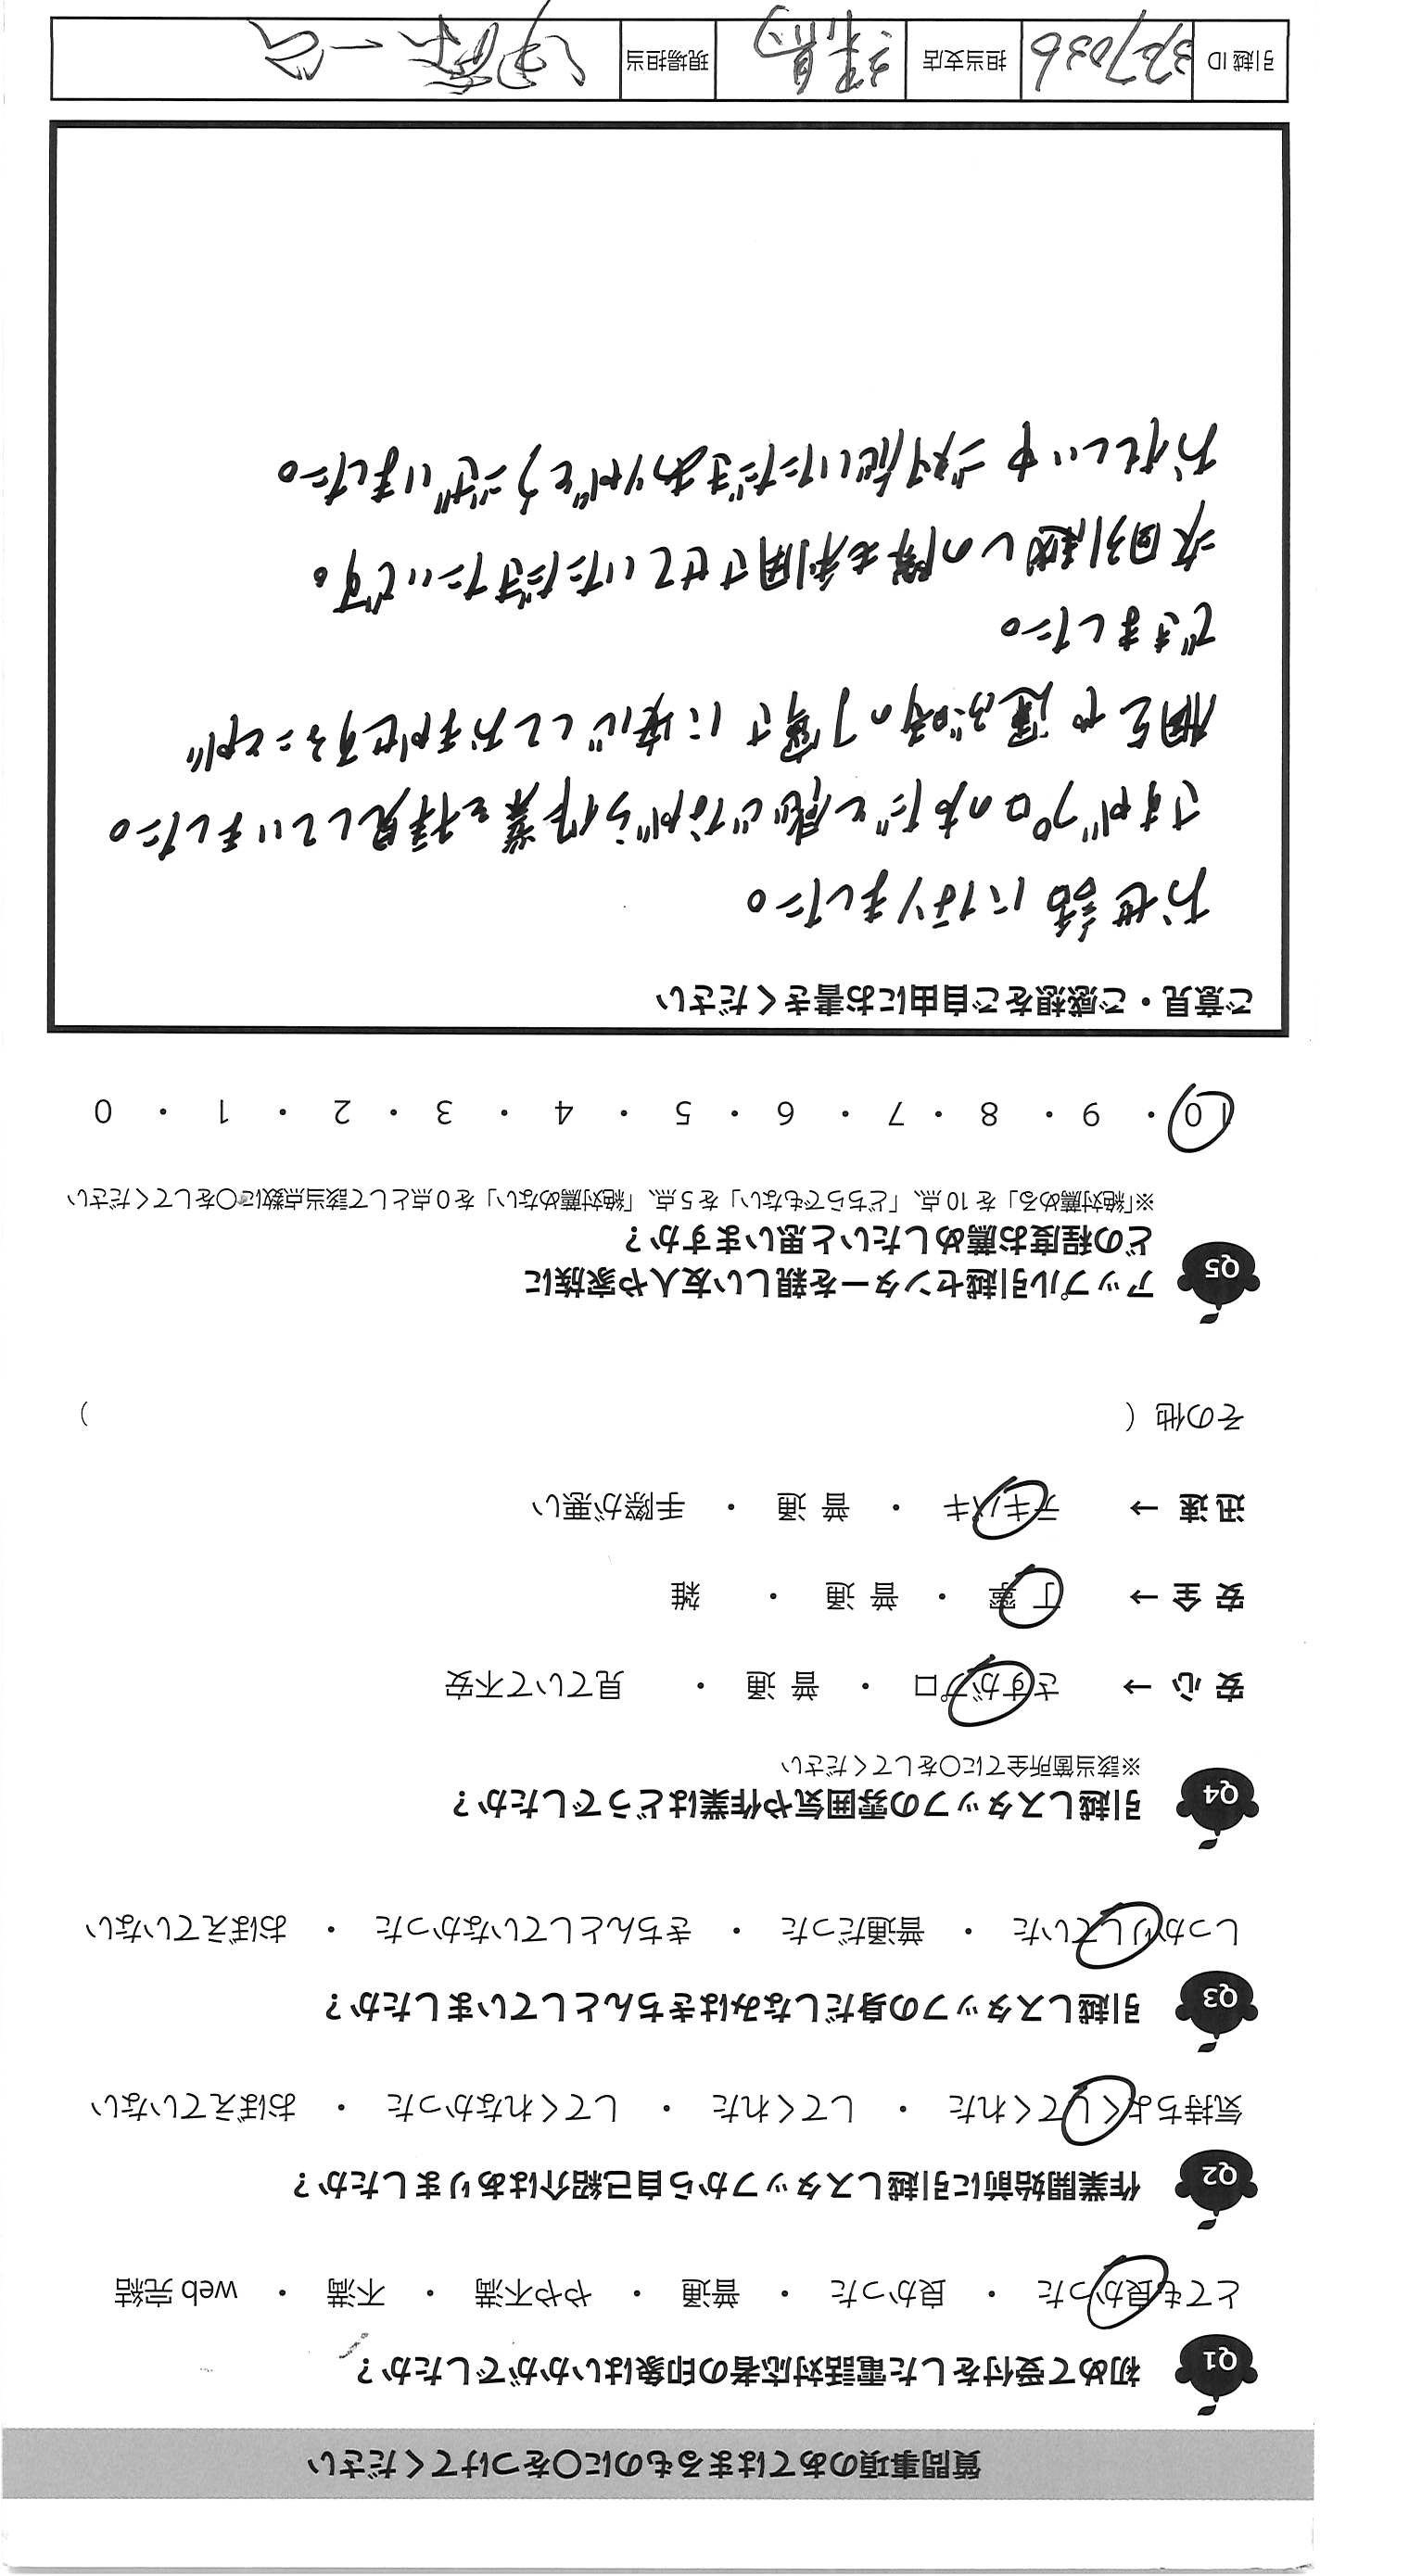 質問事項のあてはまるものに○をつけてください
Q1 初めて受付をした電話対応者の印象はいかがでしたか？
とても良かった ・ 良かった ・ 普通 ・ やや不満 ・ 不満 ・ web 完結
Q2 作業開始前に引越しスタッフから自己紹介はありましたか？
気持ちよくしてくれた ・ してくれた ・ してくれなかった ・ おぼえていない
Q3 引越しスタッフの身だしなみはきちんとしていましたか？
しっかりしていた ・ 普通だった ・ きちんとしていなかった ・ おぼえていない
Q4 引越しスタッフの雰囲気や作業はどうでしたか？
※該当箇所全てに○をしてください
安 心 → さすがプロ ・ 普 通 ・ 見ていて不安
安 全 → 丁 寧 ・ 普 通 ・ 雑
迅 速 → テキパキ ・ 普 通 ・ 手際が悪い
その他（ ）
Q5 アップル引越センターを親しい友人や家族に
どの程度お薦めしたいと思いますか？
※「絶対薦める」を 10 点、「どちらでもない」を 5 点、「絶対薦めない」を 0 点として該当点数に○をしてください
10 ・ 9 ・ 8 ・ 7 ・ 6 ・ 5 ・ 4 ・ 3 ・ 2 ・ 1 ・ 0
ご意見・ご感想をご自由にお書きください
お世話になりました。
さすがプロの方だと感じながら作業を拝見していました。
梱包や運ぶ時の丁寧さに安心してお任せすることが
できました。
次回引越しの際も利用させていただきたいです。
お忙しい中ご対応いただきありがとうございました。
引越 ID 327036 担当支店 練馬 現場担当